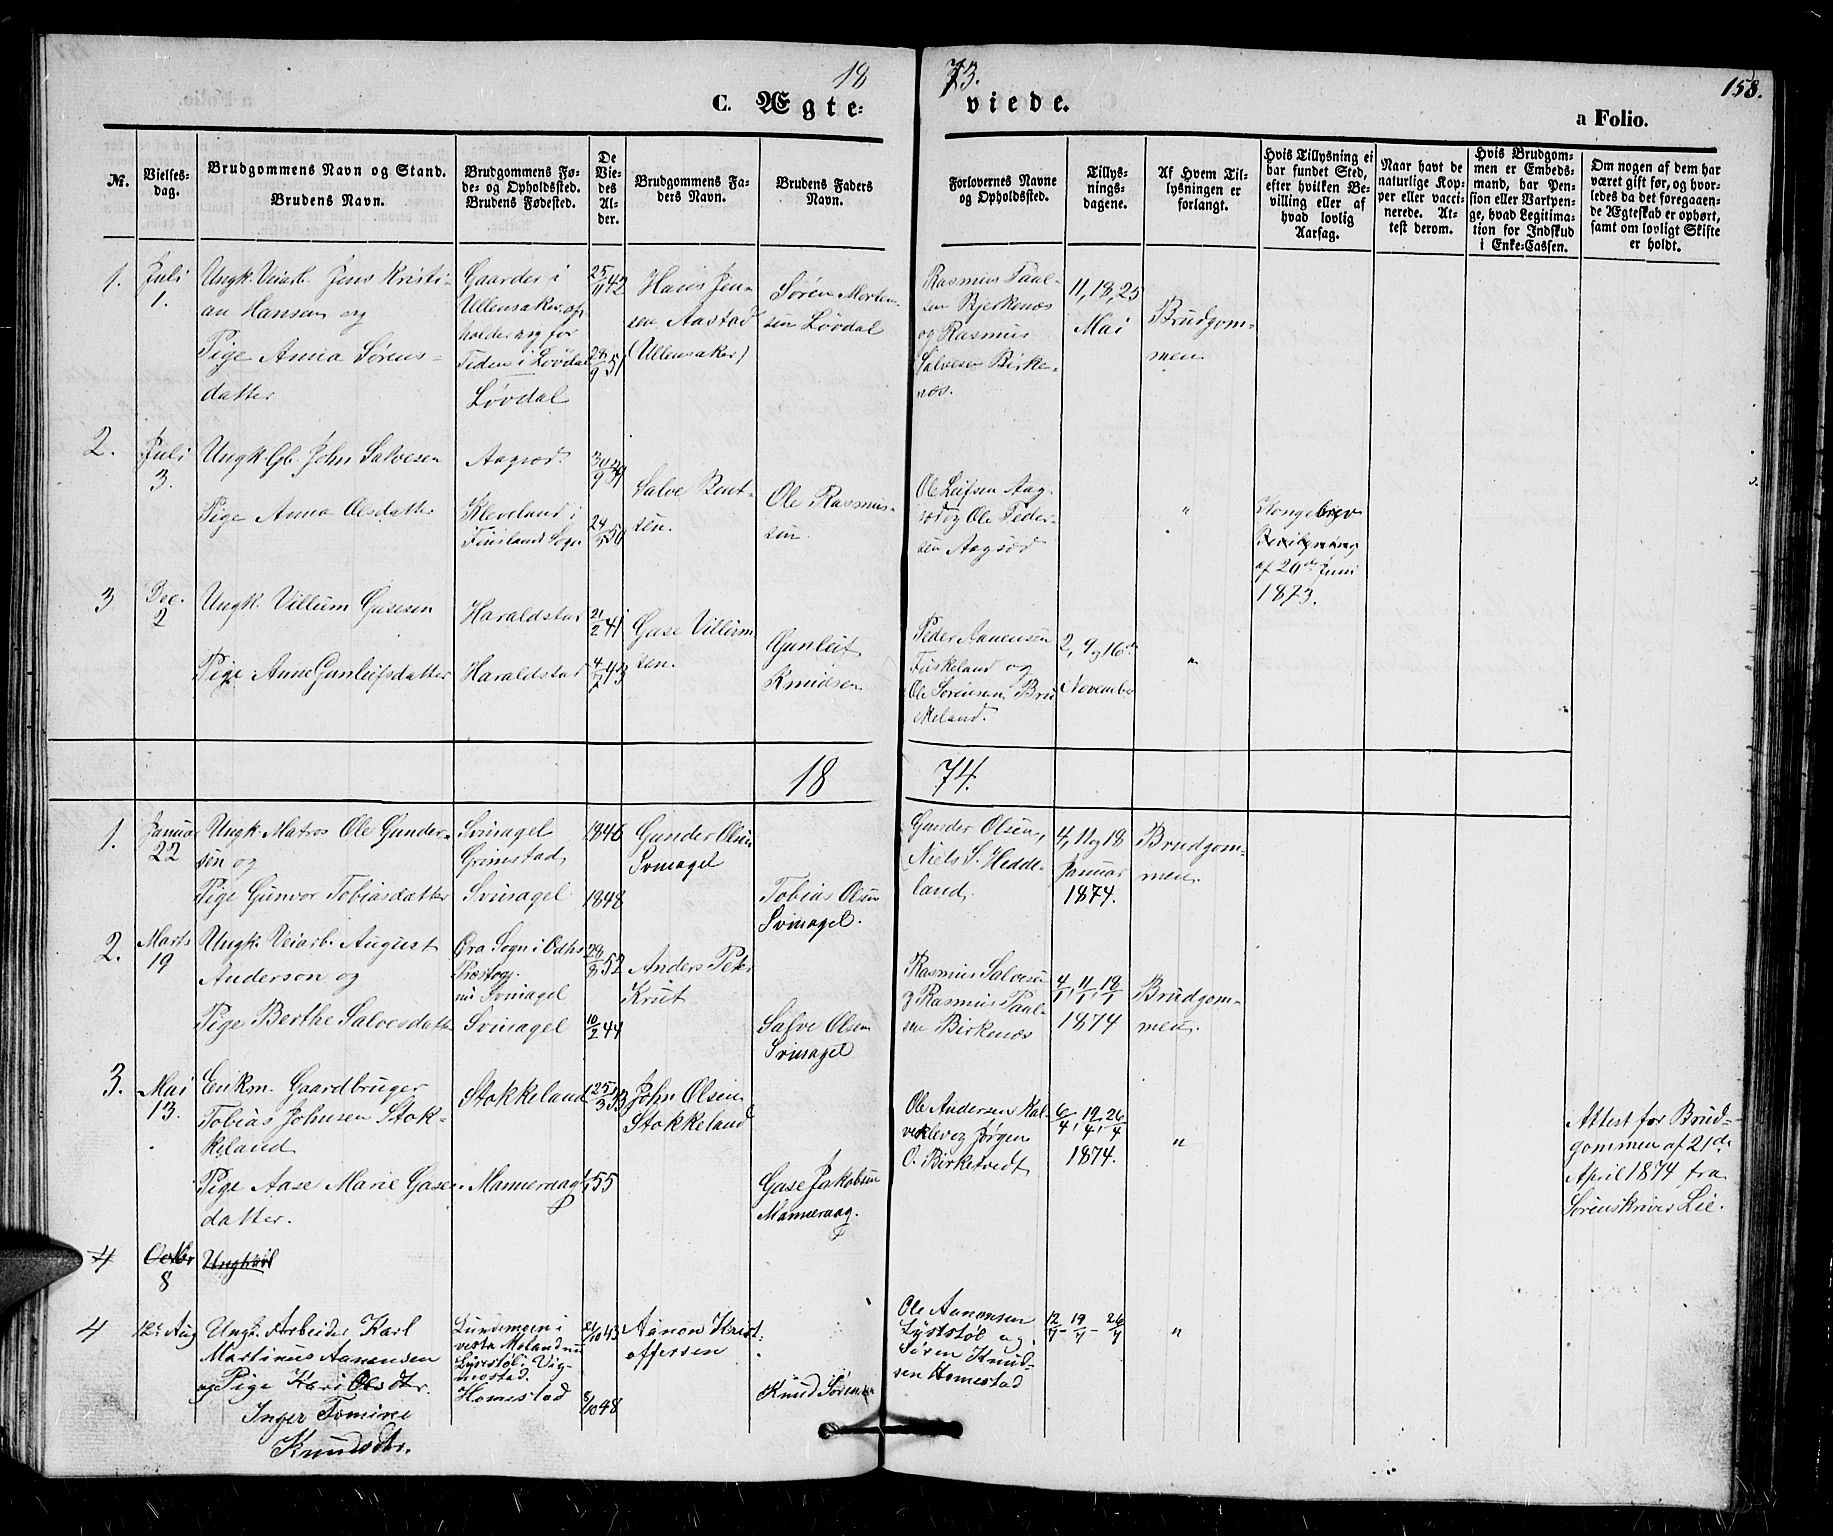 18 73. 158.
C. Ægte- viede. a Folio.
№.
Vielses-
dag.
Brudgommens Navn og Stand.
Brudens Navn.
Brudgommens Fø-
de- og Opholdssted.
Brudens Fødested.
De
Vie-
des
Al-
der.
Brudgommens Fa-
ders Navn.
Brudens Faders
Navn.
Forlovernes Navne
og Opholdssted.
Tillys-
nings-
dagene.
Af Hvem Til-
lysningen er
forlangt.
Hvis Tillysning ei
har fundet Sted,
efter hvilken Be-
villing eller af
hvad lovlig
Aarsag.
Naar havt de
naturlige Kop-
per eller vacci-
nerede. At-
test derom.
Hvis Brudgom-
men er Embeds-
mand, har Pen-
sion eller Vartpen-
ge, hvad Legitima-
tion for Indskud
i Enke-Cassen.
Om nogen af dem har
været gift før, og hvor-
ledes da det foregaaen-
de Ægteskab er ophørt,
samt om lovligt Skifte
er holdt.
1.
Juli
1.
Ungk. Veiarb. Jens Kristi-
an Hansen og
Pige Anna Sørens-
datter
Gaarder i
Ullensaker, op-
holder sig for
Tiden i Løvdal
Løvdal
25/11 42
28/9 51
Hans Jen-
sen Aastad
(Ullensaker)
Søren Morten-
sen Løvdal
Rasmus Paal-
sen Bjerkenæs
og Rasmus
Salvesen Birke-
næs.
11, 18, 25
Mai
Brudgom-
men.
2.
Juli
3.
Ungk. Gb. John Salvesen
Pige Anna Olsdatter
Aagsod.
Kleveland i
Finsland Sogn
30/9 39
50
Salve Bent-
sen.
Ole Rasmus-
sen.
Ole Leifsen Aag-
sod og Ole Peder-
sen Aagsod
"
Kongebrev
Bevilgning
af 20de Juni
1873.
3
Dec.
2
Ungk. Villum Gasesen
Pige Anne Gunleifsdatter
Haraldstad
Haraldstad
21/2 41
4/7 43
Gase Villum-
sen.
Gunleif
Knudsen
Peder Aanensen
Fuskeland og
Ole Sørensen Bru-
skeland.
2, 9 og 16de
November
"
18 74.
1.
Januar
22
Ungk. Matros Ole Gunder-
sen og
Pige Gunvor Tobiasdatter
Svinagel
Grimstad,
Svinagel
1846
1848
Gunder Olsen
Svinagel
Tobias Olsen
Svinagel.
Gunder Olsen,
Niels S. Hedde-
land,
4, 11 og 18
Januar
1874.
Brudgom-
men.
2.
Marts
19
Ungk. Veiarb. August
Anderson og
Pige Berthe Salvesdatter
Øra Sogn i Odhs
Præstegj.
nu Svinagel
Svinagel
28/8 52
10/2 44
Anders Peter
Krut
Salve Olsen
Svinagel
Rasmus Salvesen
og Rasmus Paal-
sen Birkenæs
4/1, 11/1, 18/1
1874
Brudgom-
men.
3.
Mai
13.
Enkm. Gaardbruger
Tobias Johnsen Stok-
keland
Pige Aase Marie Gases-
datter.
Stokkeland
Manneraag
55
John Olsen
Stokkeland
Gase Jakobsen
Manneraag.
Ole Andersen Kal-
veklev og Jørgen
O. Birketvedt
6/4, 19/4, 26/4
1874.
"
Attest for Brud-
gommen af 21de
April 1874 fra
Sørenskriver Lie.
4
Octbr
8
Ungkarl
4
12te Aug
Ungk. Arbeider Karl
Martinus Aanensen
og Pige Kari Olsdtr.
Inger Tomine
Knudsdtr.
Lundemoen i
vestre Moland nu
Lystøl i Vig-
mostad.
Homestad
21/10 43
8/10 48
Aanon Krist-
offersen
Knud Sørensen
Ole Aanonsen
Lystøl og
Søren Knud-
sen Homestad
12/7 - 19/7 - 26/7
"